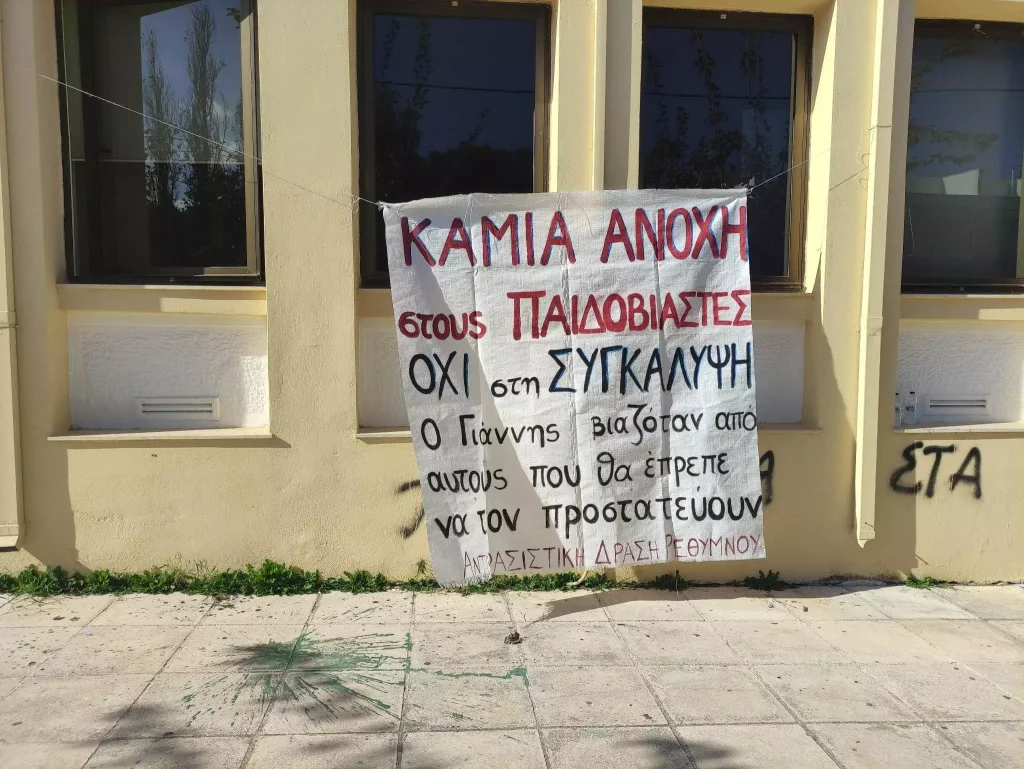 ΚΑΜΙΑ ΑΝΟΧΗ
στους ΠΑΙΔΟΒΙΑΣΤΕΣ
ΟΧΙ στη ΣΥΓΚΑΛΥΨΗ
Ο Γιάννης βιαζόταν από
αυτους που θα έπρεπε
να τον προστατεύουν
ΑΝΤΡΑΣΙΣΤΙΚΗ ΔΡΑΣΗ ΡΕΘΥΜΝΟΥ
ΣΤΑ